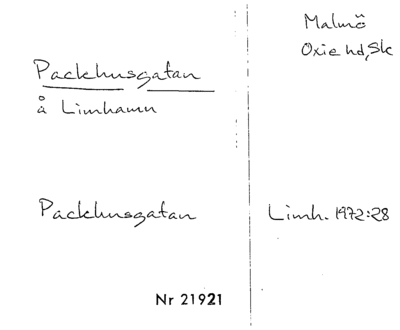 Malmö
Oxie hd, Sk
Packhusgatan
å Limhamn
Packhusgatan
Limh. 1972:28
Nr 21921